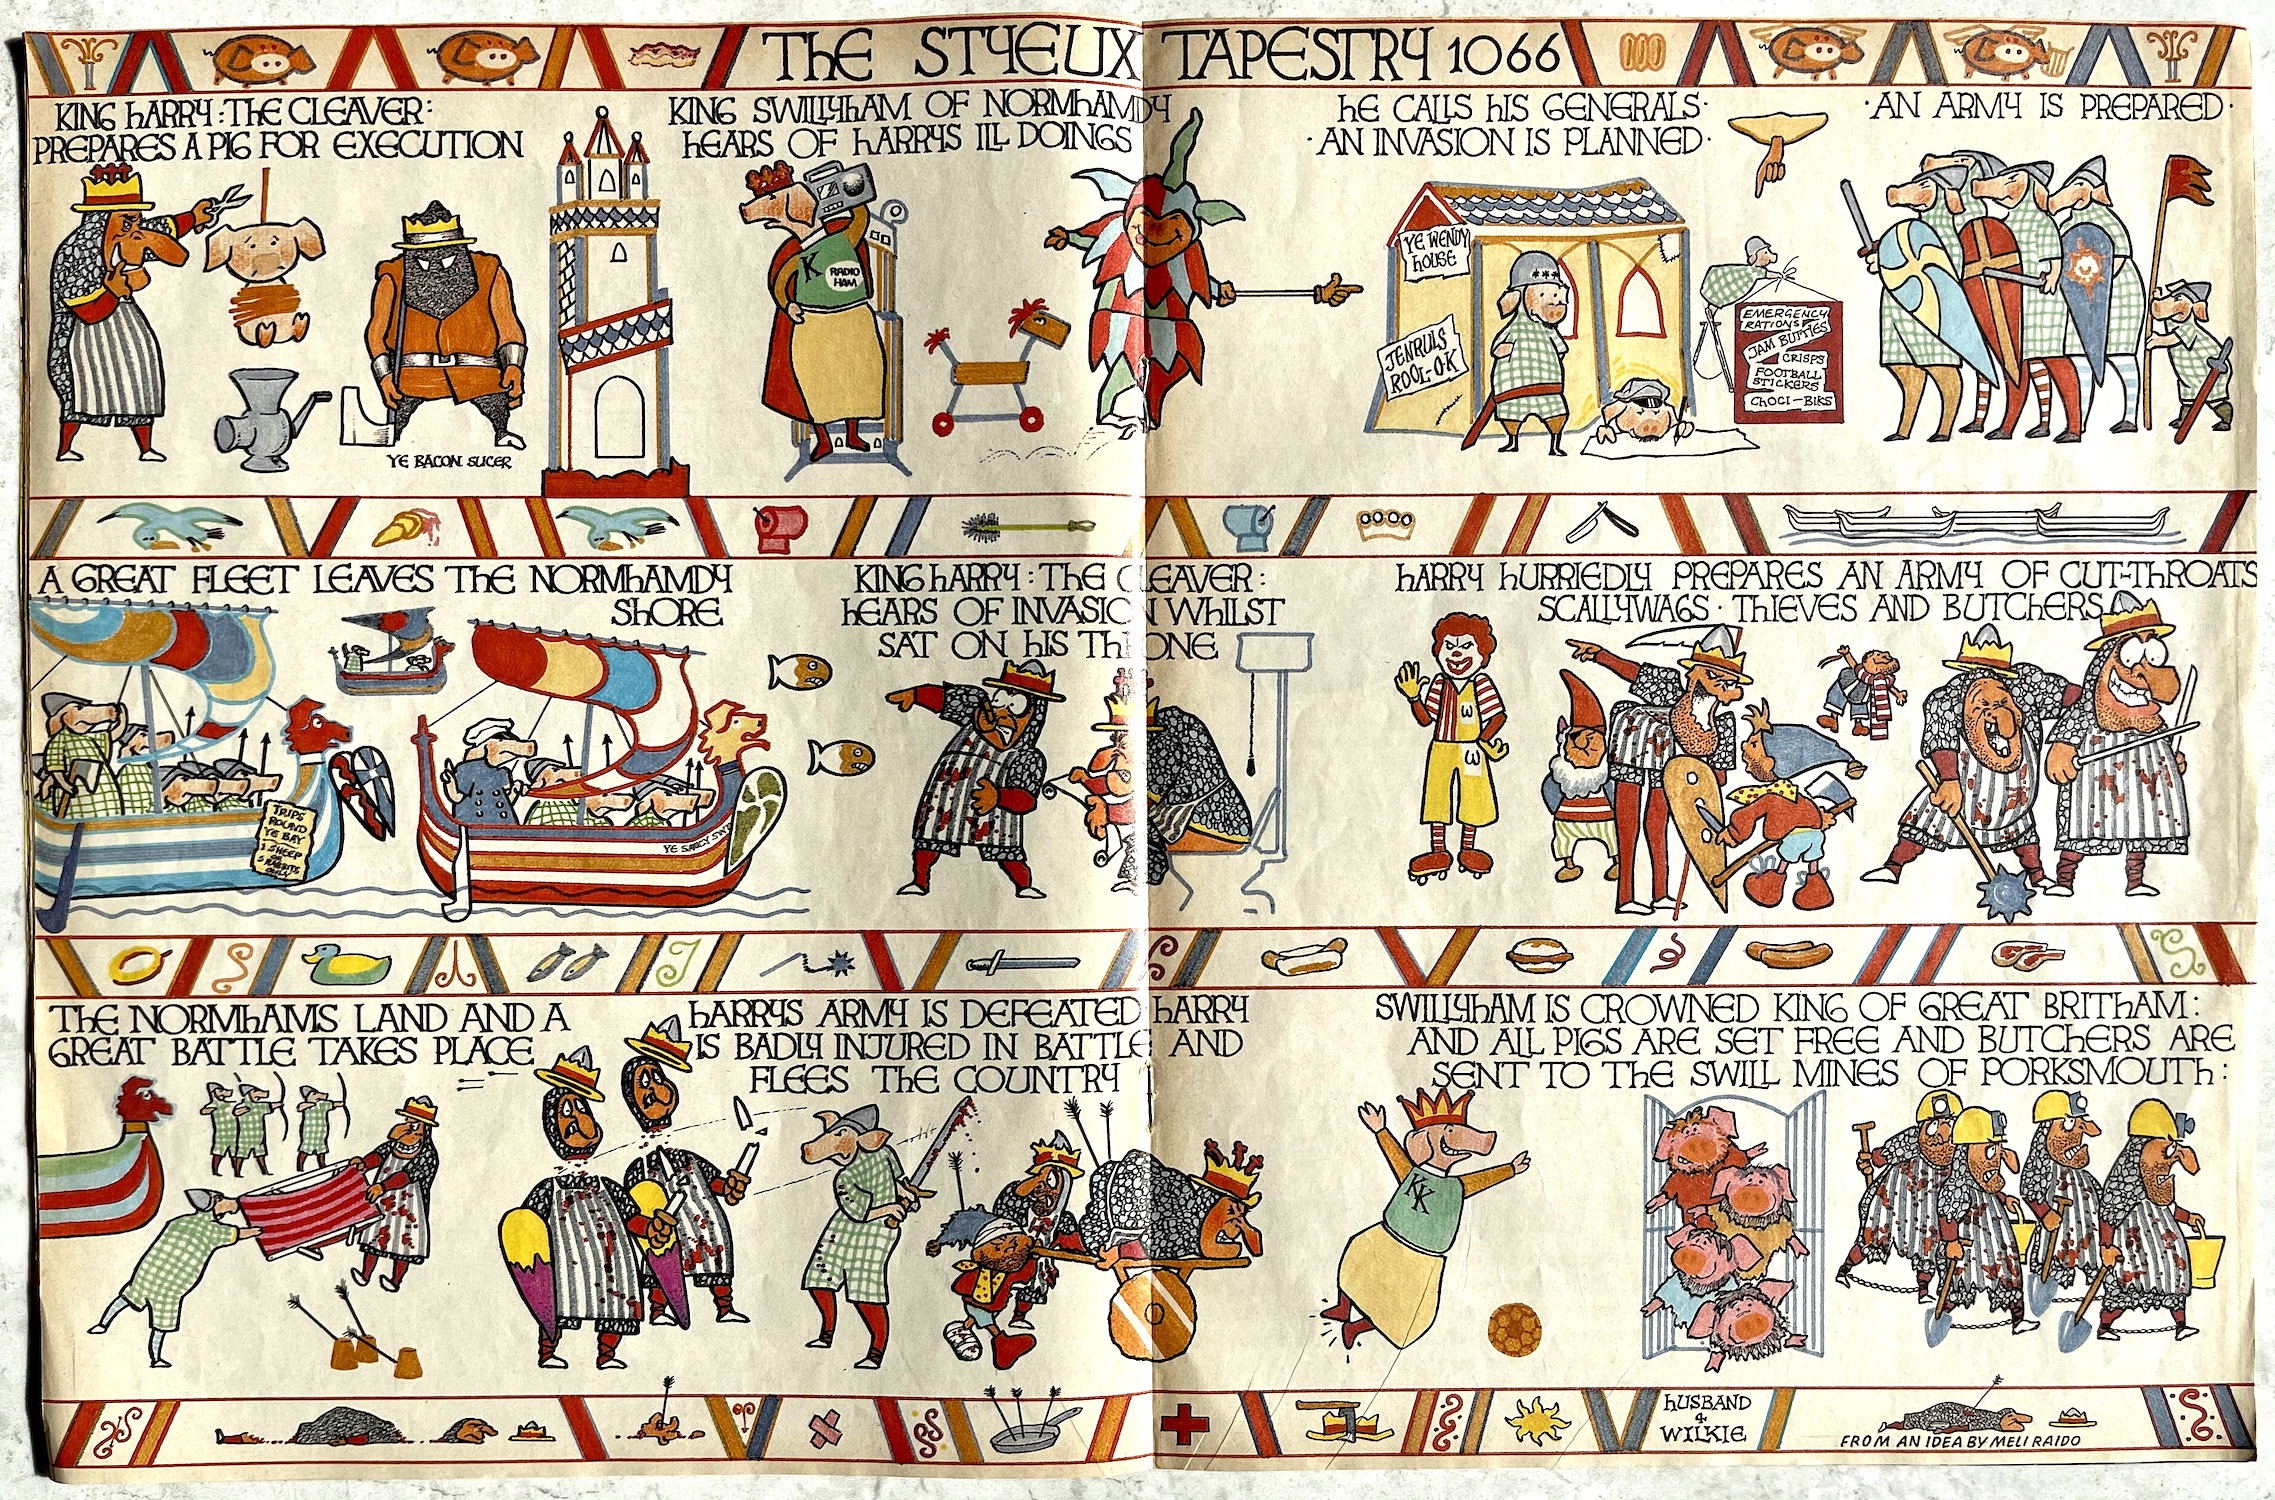 THE STYEUX TAPESTRY 1066
KING HARRY : THE CLEAVER :
PREPARES A PIG FOR EXECUTION
YE BACON SLICER
KING SWILLYHAM OF NORMHAMDY
HEARS OF HARRYS ILL DOINGS
K
RADIO
HAM
HE CALLS HIS GENERALS ·
· AN INVASION IS PLANNED ·
YE WENDY
HOUSE
JENRULS
ROOL-O-K
EMERGENCY
RATIONS
JAM BUTTIES
CRISPS
FOOTBALL
STICKERS
CHOCI-BIKS
· AN ARMY IS PREPARED ·
A GREAT FLEET LEAVES THE NORMHAMDY
SHORE
TRIPS
ROUND
YE BAY
1 SHEEP
OR
5 RABBITS
ONLY
YE SAUCY
KING HARRY : THE CLEAVER :
HEARS OF INVASION WHILST
SAT ON HIS THRONE
HARRY HURRIEDLY PREPARES AN ARMY OF CUT-THROATS
SCALLYWAGS · THIEVES AND BUTCHERS
THE NORMHAMS LAND AND A
GREAT BATTLE TAKES PLACE
HARRYS ARMY IS DEFEATED HARRY
IS BADLY INJURED IN BATTLE AND
FLEES THE COUNTRY
SWILLYHAM IS CROWNED KING OF GREAT BRITHAM :
AND ALL PIGS ARE SET FREE AND BUTCHERS ARE
SENT TO THE SWILL MINES OF PORKSMOUTH :
KK
HUSBAND
&
WILKIE
FROM AN IDEA BY MELI RAIDO